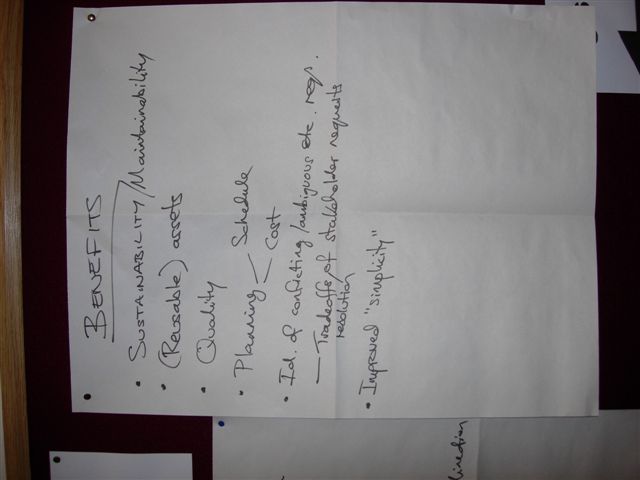 BENEFITS
• SUSTAINABILITY/Maintainability
• (Reusable) assets
• Quality
• Planning < Schedule
Cost
• Id. of conflicting/ambiguous etc. reqs.
— Tradeoffs/of stakeholder requests
resolution
• Improved "simplicity"